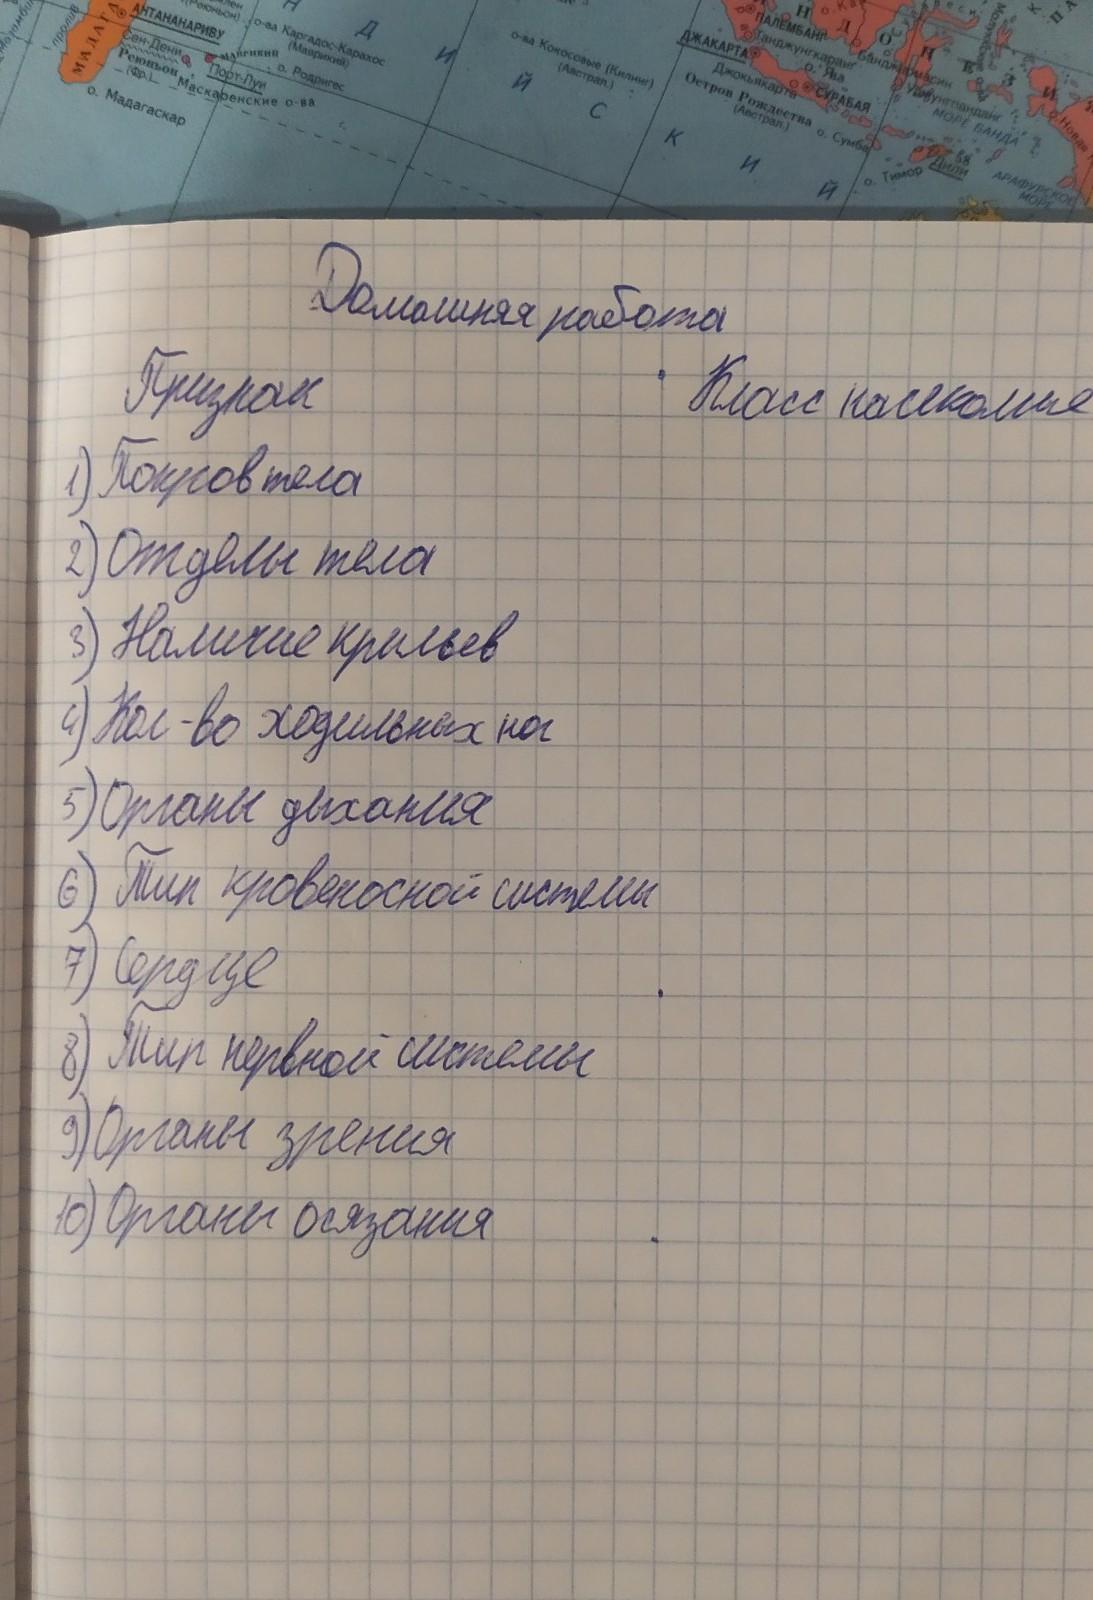 АНТАНАНАРИВУ
(Реюньон)
о-ва Каргадос-Карахос
(Маврикий)
Сен-Дени
МАВРИКИЙ
Реюньон
(Фр.)
Порт-Луи
о. Родригес
Маскаренские о-ва
МАДАГА
о. Мадагаскар
Н Д И Й С К И Й
о-ва Кокосовые (Килинг)
(Австрал.)
ПАЛЕМБАНГ
ДЖАКАРТА
Танджунгкаранг
о. Ява
Банджармасин
Джокьякарта
СУРАБАЯ
Уджунгпанданг
Остров Рождества
(Австрал.)
МОРЕ БАНДА
о. Сумба
Дили
о. Тимор
АРАФУРСКОЕ
МОРЕ
Новая
Домашняя работа
Признак Класс насекомые
1) Покров тела
2) Отделы тела
3) Наличие крыльев
4) Кол-во ходильных ног
5) Органы дыхания
6) Тип кровеносной системы
7) Сердце
8) Тип нервной системы
9) Органы зрения
10) Органы осязания